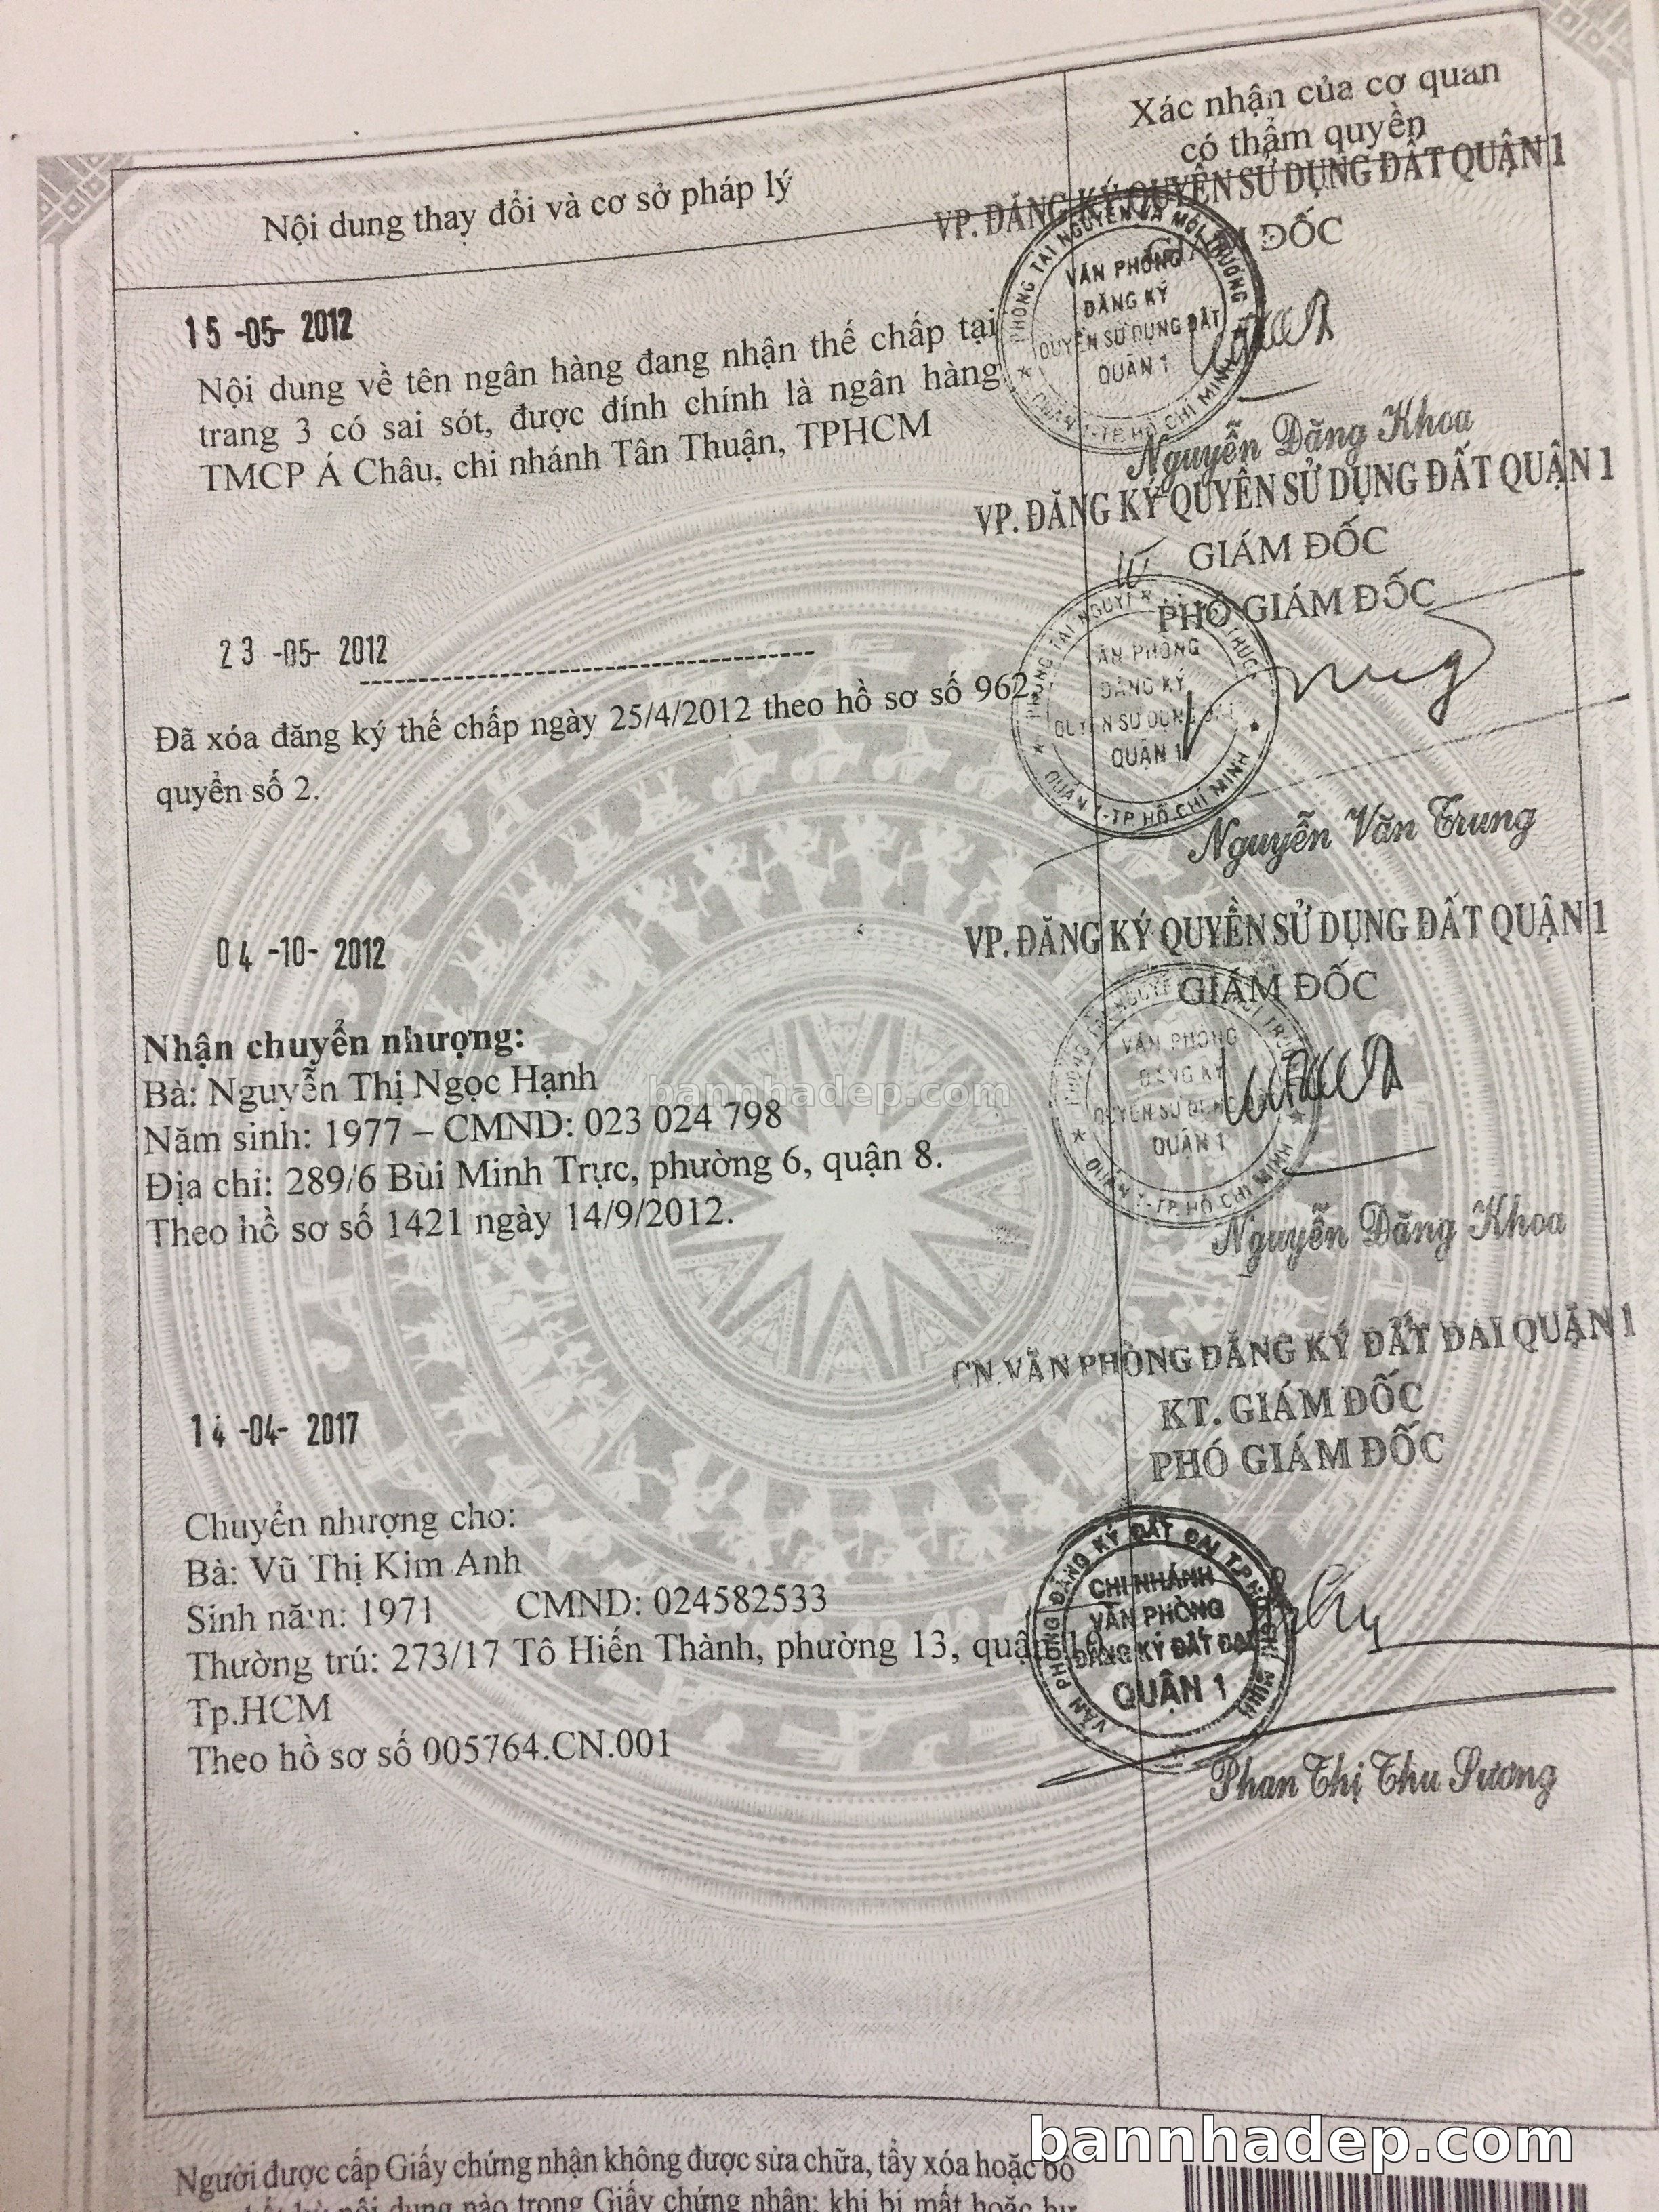 Nội dung thay đổi và cơ sở pháp lý
Xác nhận của cơ quan
có thẩm quyền
VP. ĐĂNG KÝ QUYỀN SỬ DỤNG ĐẤT QUẬN 1
GIÁM ĐỐC
15 -05- 2012
Nội dung về tên ngân hàng đang nhận thế chấp tại
trang 3 có sai sót, được đính chính là ngân hàng
TMCP Á Châu, chi nhánh Tân Thuận, TPHCM
PHÒNG TÀI NGUYÊN VÀ MÔI TRƯỜNG
VĂN PHÒNG
ĐĂNG KÝ
QUYỀN SỬ DỤNG ĐẤT
QUẬN 1
QUẬN 1-TP. HỒ CHÍ MINH
Nguyễn Đăng Khoa
VP. ĐĂNG KÝ QUYỀN SỬ DỤNG ĐẤT QUẬN 1
GIÁM ĐỐC
PHÓ GIÁM ĐỐC
23 -05- 2012
Đã xóa đăng ký thế chấp ngày 25/4/2012 theo hồ sơ số 962,
quyển số 2.
VĂN PHÒNG
ĐĂNG KÝ
QUYỀN SỬ DỤNG
QUẬN 1
QUẬN 1-TP. HỒ CHÍ MINH
Nguyễn Văn Trung
VP. ĐĂNG KÝ QUYỀN SỬ DỤNG ĐẤT QUẬN 1
GIÁM ĐỐC
04 -10- 2012
Nhận chuyển nhượng:
Bà: Nguyễn Thị Ngọc Hạnh
Năm sinh: 1977 – CMND: 023 024 798
Địa chỉ: 289/6 Bùi Minh Trực, phường 6, quận 8.
Theo hồ sơ số 1421 ngày 14/9/2012.
bannhadep.com
VĂN PHÒNG
ĐĂNG KÝ
QUYỀN SỬ DỤNG
QUẬN 1
QUẬN 1-TP. HỒ CHÍ MINH
Nguyễn Đăng Khoa
CN. VĂN PHÒNG ĐĂNG KÝ ĐẤT ĐAI QUẬN 1
KT. GIÁM ĐỐC
PHÓ GIÁM ĐỐC
14 -04- 2017
Chuyển nhượng cho:
Bà: Vũ Thị Kim Anh
Sinh năm: 1971 CMND: 024582533
Thường trú: 273/17 Tô Hiến Thành, phường 13, quận 10,
Tp.HCM
Theo hồ sơ số 005764.CN.001
VĂN PHÒNG ĐĂNG KÝ ĐẤT ĐAI TP. HỒ CHÍ MINH
CHI NHÁNH
VĂN PHÒNG
ĐĂNG KÝ ĐẤT ĐAI
QUẬN 1
Phan Thị Thu Sương
bannhadep.com
Người được cấp Giấy chứng nhận không được sửa chữa, tẩy xóa hoặc bổ
nội dung nào trong Giấy chứng nhận; khi bị mất hoặc hư